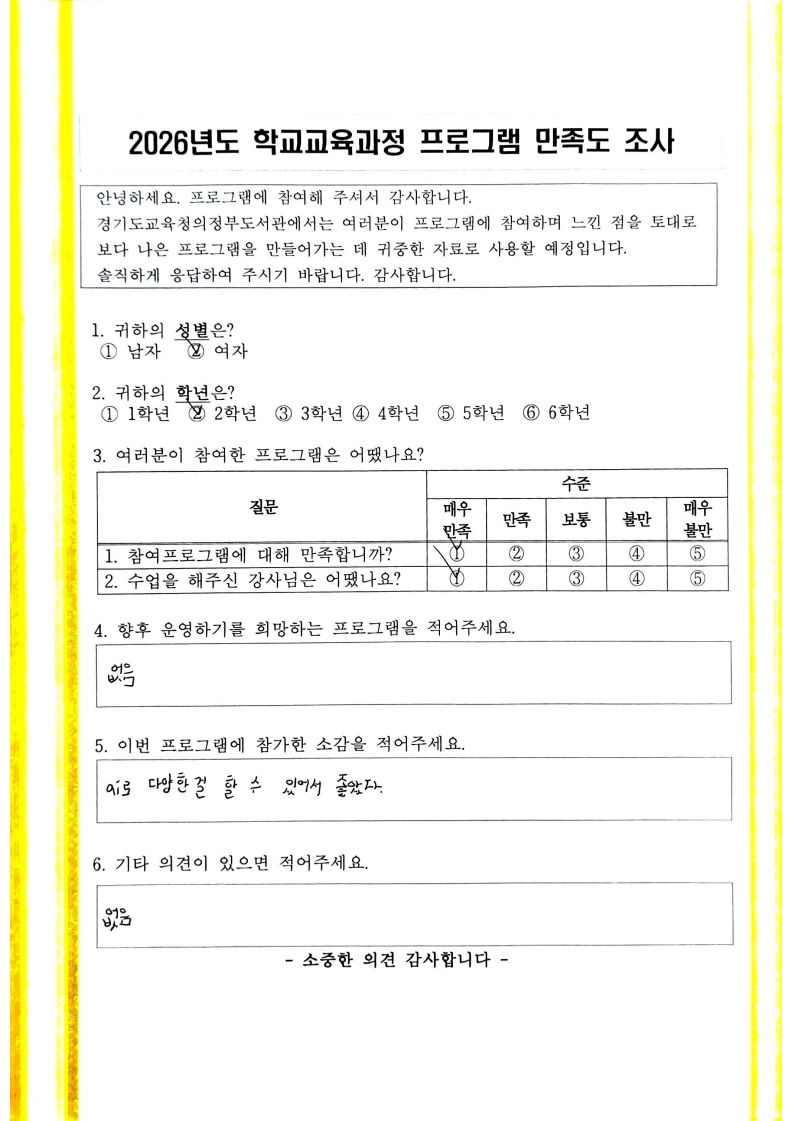 2026년도 학교교육과정 프로그램 만족도 조사
안녕하세요. 프로그램에 참여해 주셔서 감사합니다.
경기도교육청의정부도서관에서는 여러분이 프로그램에 참여하며 느낀 점을 토대로
보다 나은 프로그램을 만들어가는 데 귀중한 자료로 사용할 예정입니다.
솔직하게 응답하여 주시기 바랍니다. 감사합니다.
1. 귀하의 성별은?
① 남자 ② 여자
2. 귀하의 학년은?
① 1학년 ② 2학년 ③ 3학년 ④ 4학년 ⑤ 5학년 ⑥ 6학년
3. 여러분이 참여한 프로그램은 어땠나요?
질문 수준
매우 만족 만족 보통 불만 매우 불만
1. 참여프로그램에 대해 만족합니까? ① ② ③ ④ ⑤
2. 수업을 해주신 강사님은 어땠나요? ① ② ③ ④ ⑤
4. 향후 운영하기를 희망하는 프로그램을 적어주세요.
없음
5. 이번 프로그램에 참가한 소감을 적어주세요.
ai로 다양한걸 할 수 있어서 좋았다.
6. 기타 의견이 있으면 적어주세요.
없음
- 소중한 의견 감사합니다 -